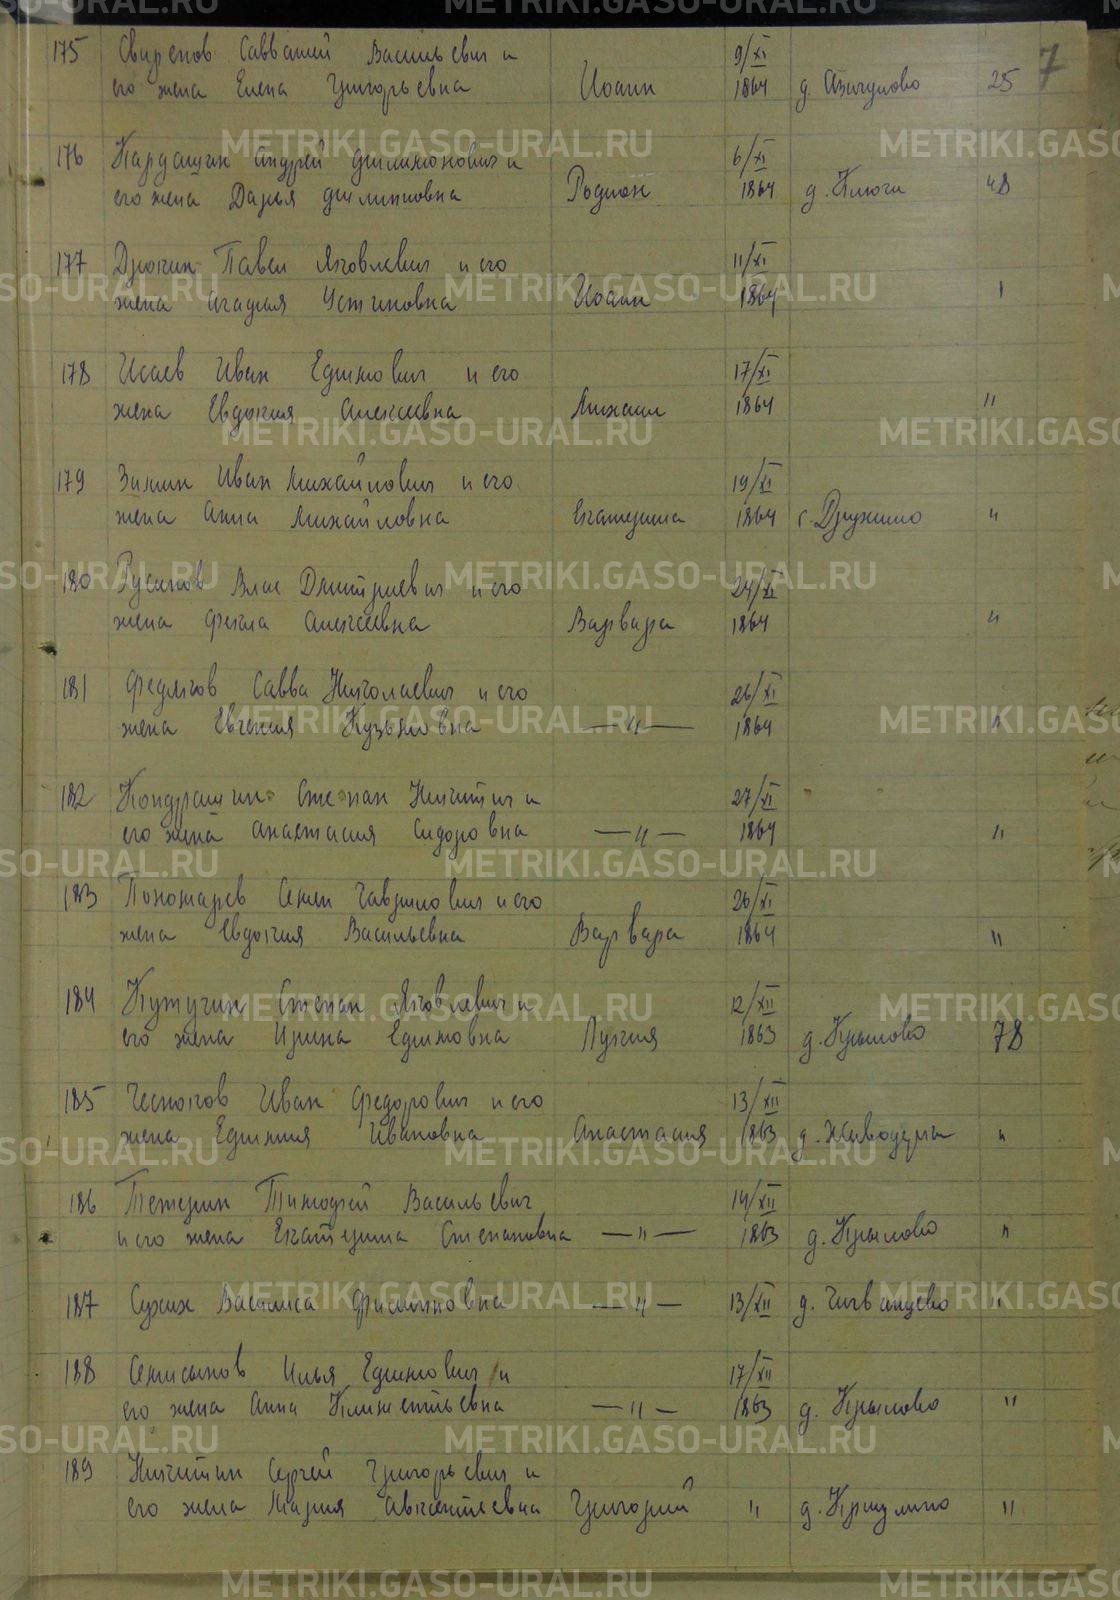 7
175 Свирепов Савватий Васильевич и 9/XI
его жена Елена Григорьевна Иоанн 1864 д. Азигулово 25
176 Кардашин Андрей Филимонович и 6/XI
его жена Дарья Филипповна Родион 1864 д. Ключи 48
177 Дрокин Павел Яковлевич и его 11/XI
жена Агафия Устиновна Иоанн 1864 1
178 Исаев Иван Ефимович и его 17/XI
жена Евдокия Алексеевна Михаил 1864 "
179 Зимин Иван Михайлович и его 19/XI
жена Анна Михайловна Екатерина 1864 с. Дружино "
180 Русинов Влас Дмитриевич и его 24/XI
жена Фекла Алексеевна Варвара 1864 "
181 Федяков Савва Николаевич и его 26/XI
жена Евгения Кузьмовна — " — 1864 "
182 Кондрашин Степан Никитич и 27/XI
его жена Анастасия Сидоровна — " — 1864 "
183 Пономарев Семен Гаврилович и его 26/XI
жена Евдокия Васильевна Варвара 1864 "
184 Кужугин Степан Яковлевич и 12/XII
его жена Ирина Ефимовна Лукия 1863 д. Крылово 78
185 Чесноков Иван Федорович и его 13/XII
жена Ефимия Ивановна Анастасия 1863 д. Живодеры "
186 Тетерин Тимофей Васильевич 14/XII
и его жена Екатерина Степановна — " — 1863 д. Крылово "
187 Сухих Василиса Филимоновна — " — 13/XII д. Чигвинцево "
188 Семисынов Илья Ефимович и 17/XII
его жена Анна Климентьевна — " — 1863 д. Крылово "
189 Никитин Сергей Григорьевич и
его жена Мария Авксентьевна Григорий " д. Криулино "
METRIKI.GASO-URAL.RU